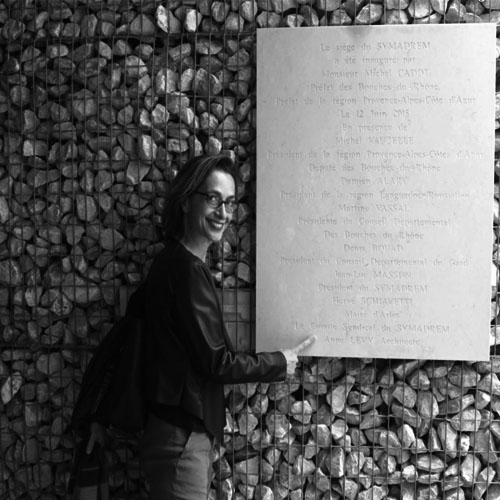 Le siège du SYMADREM
a été inauguré par
Monsieur Michel CADOT
Préfet des Bouches du Rhône,
Préfet de la région Provence-Alpes-Côte d'Azur
Le 12 Juin 2015
En présence de
Michel VAUZELLE
Président de la région Provence-Alpes-Côtes d'Azur
Député des Bouches du Rhône
Damien ALARY
Président de la région Languedoc-Roussillon
Martine VASSAL
Présidente du Conseil Départemental
Des Bouches du Rhône
Denis BOUAD
Président du Conseil Départemental du Gard
Jean-Luc MASSON
Président du SYMADREM
Hervé SCHIAVETTI
Maire d'Arles
Le Comité Syndical du SYMADREM
Anne LEVY Architecte